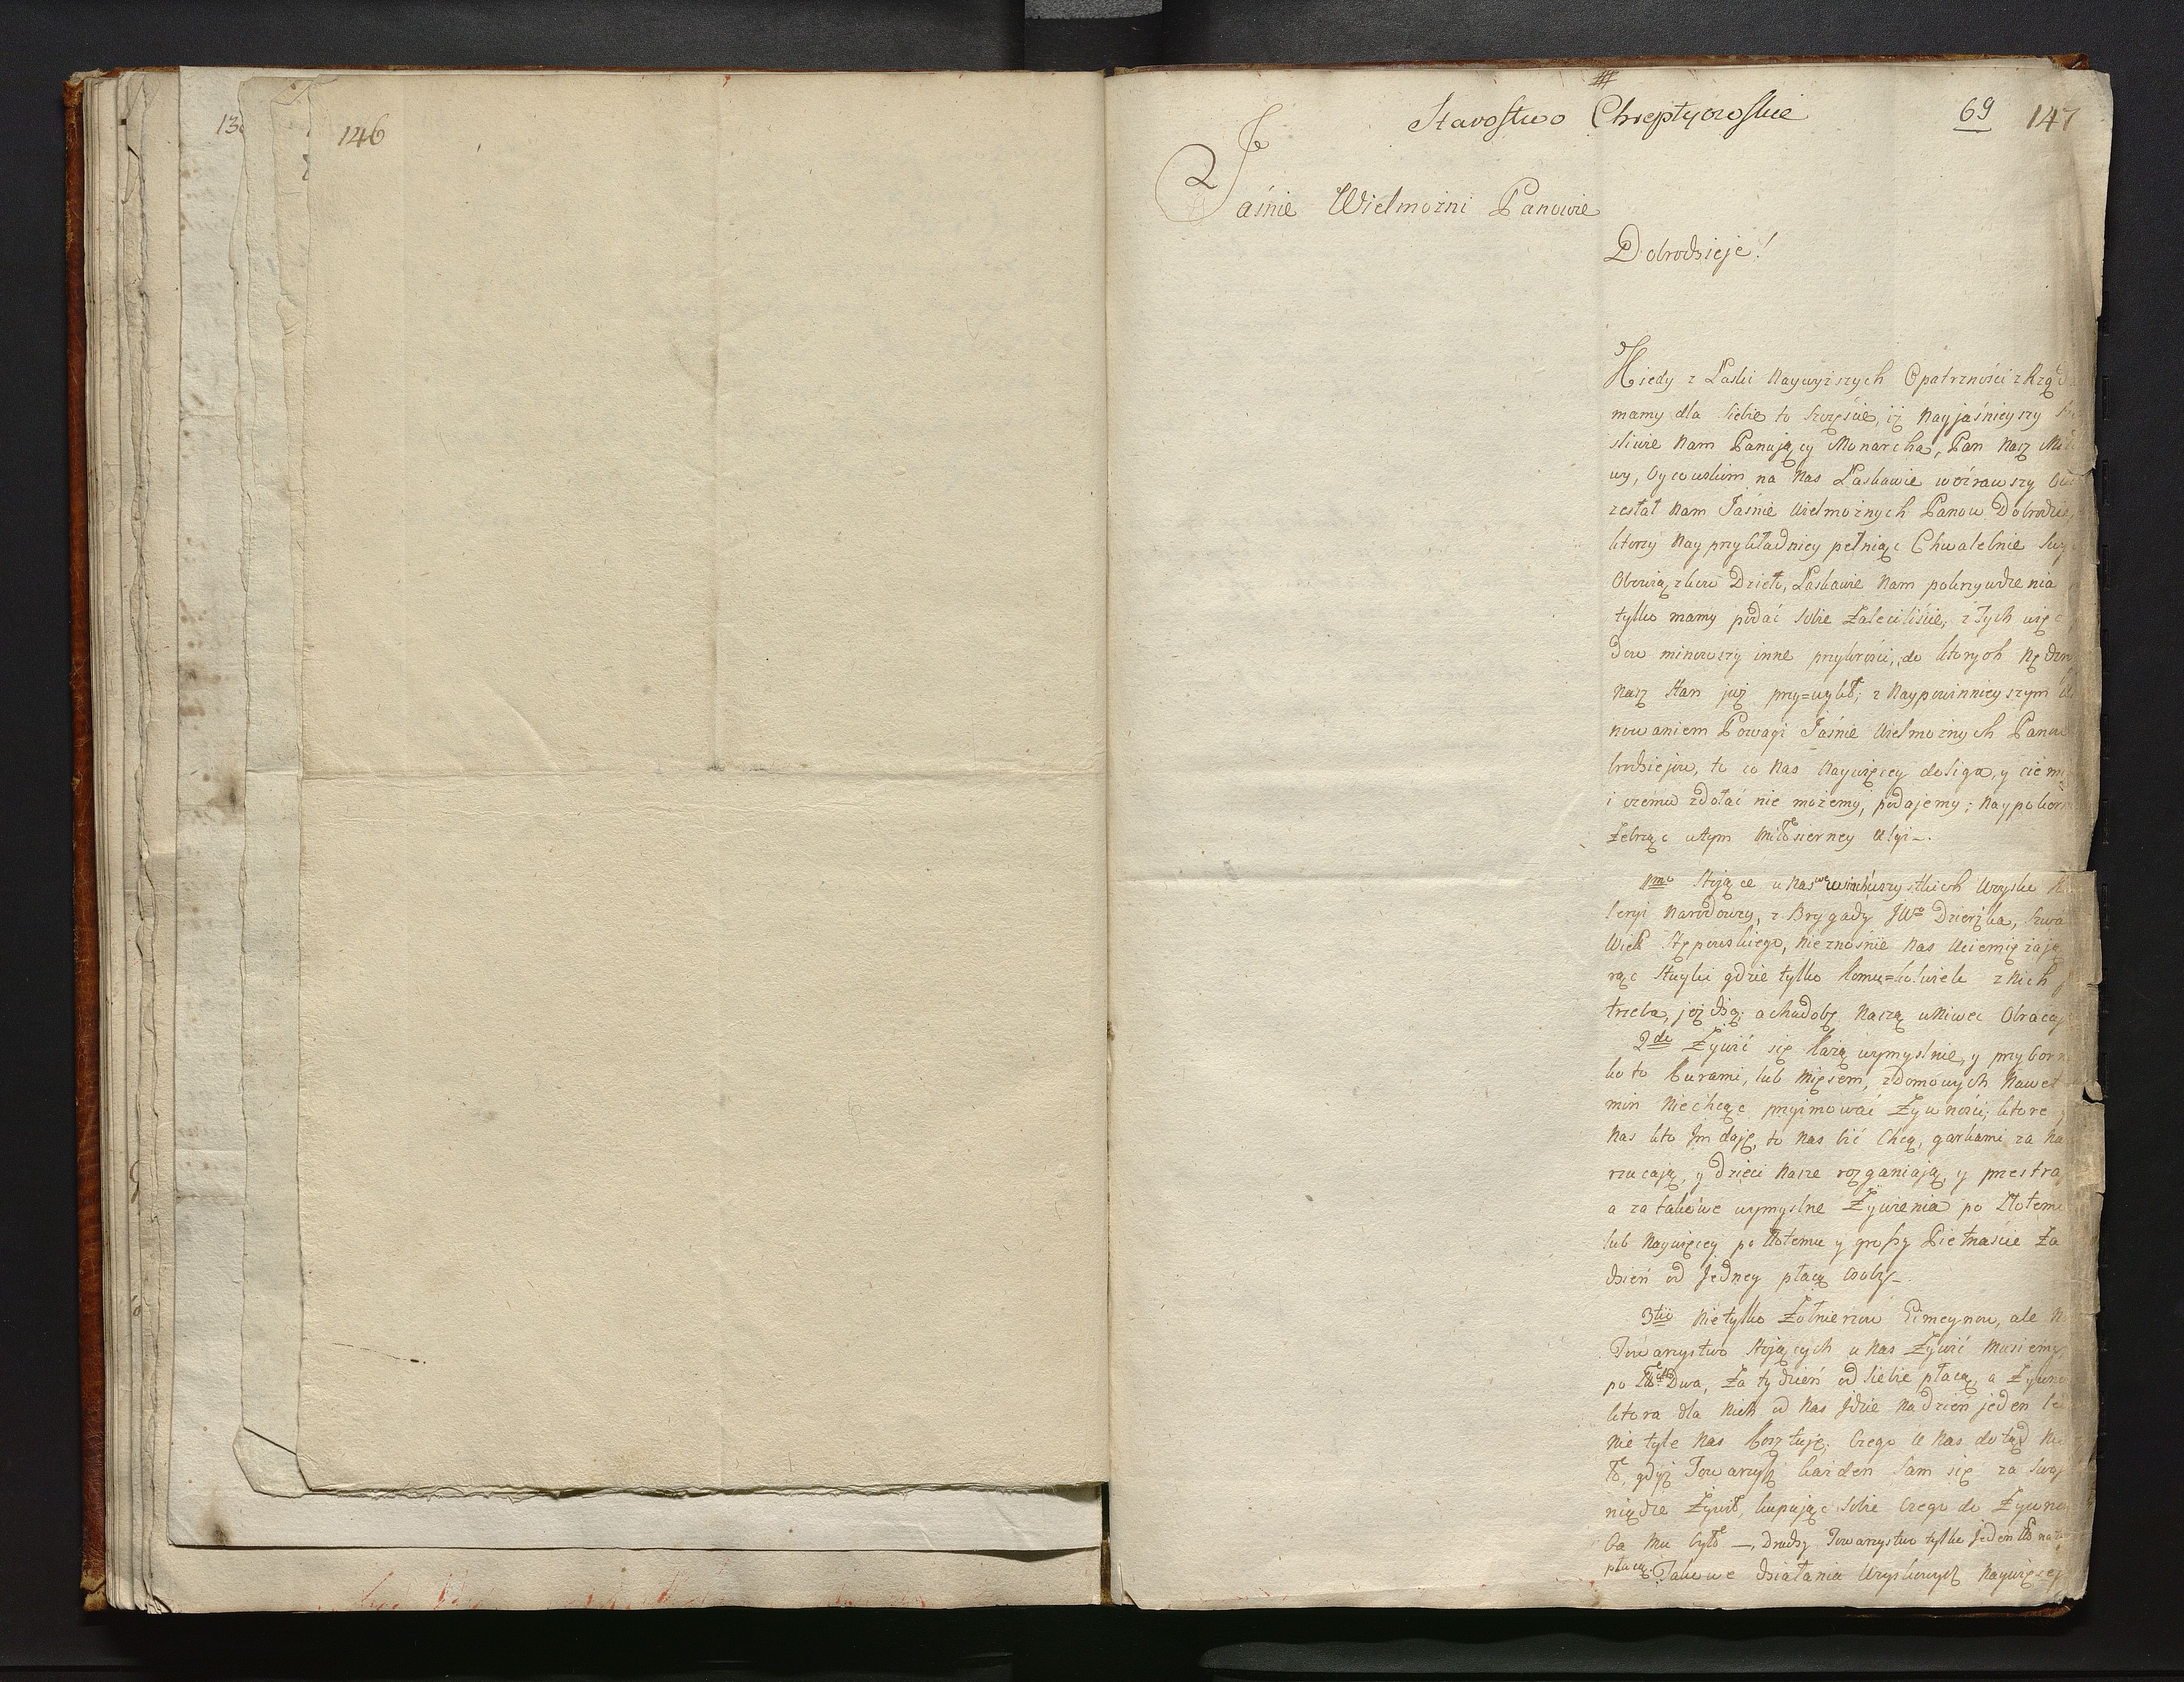 13
146
Starostwo Chreptyowskie
69 147
Jaśnie Wielmożni Panowie
Dobrodzieje!
Kiedy z Łaski Naywyższych Opatrzności z Rzą
mamy dla siebie to szczęście, iż Nayjaśnieyszy
śliwie Nam Panujący Monarcha, Pan Nasz
wy, Oycowskim na Nas Łaskawie wźrawszy
zesłał Nam Jaśnie Wielmożnych Panow Dobrodzie
ktorzy Nayprzykładniey pełniąc Chwalebnie
Obowiązkow Dzieło, Łaskawie Nam pokrzywdzenia
tylko mamy podać sobie Zaleciliście, z Tych więc
dow minowszy inne przykrości, do ktorych Nędzn
Nasz Stan już przy=wykł; z Naypowinnieyszym
nowaniem Powagi Jaśnie Wielmożnych Panow
brodziejow, to co Nas Naywięcey dosiga, y ciemi
i czemu zdołać nie możemy, podajemy; Naypokorn
Żebrząc w tym Miłosierney Ulgi –.
1mo Stojące u Nas wszystkich Woysko
leryi Narodowey, z Brygady JWo Dzierżka, Szwa
Wielo Stępowskiego, Nieznośnie Nas Uciemiężają
rąc Stuyki gdzie tylko komu=kolwiek z Nich
trzeba, jeżdżą; a chudobę Naszą w Niwec Obracaj
2do Żywić się Każą wymyslnie, y przyborn
ko to Kurami, lub Mięsem, z domowych Nawet
min Niechcąc przyimować Żywności; ktore
Nas kto Im daje, to Nas bić Chcą, garkami za Na
rzucają, y Dzieci Nasze rozganiają, y przestra
a za takowe wymyslne Żywienia po Złotemu
lub Naywięcey po Złotemu y groszy Pietnaście Za
dzień od Jedney płacą Osoby –.
3tio Nie tylko Żołnierzow Gimeynow, ale
Towarzystwo Stojących u Nas Żywić Musiemy,
po Złł. Dwa, Za tydzień od siebie płacą, a Żywno
ktora dla Nich od Nas Idzie Na dzień jeden
Nie tyle Nas kosztuje; Czego U Nas dotąd
ło, gdyż Towarzysz każden Sam się za Swoj
niądze Żywił, kupując Sobie Czego do Żywno
ba Mu było –, Drudzy Towarzystwo tylko Jeden Zło na
płacą. Takowe Działania Woyskowych Naywięcey